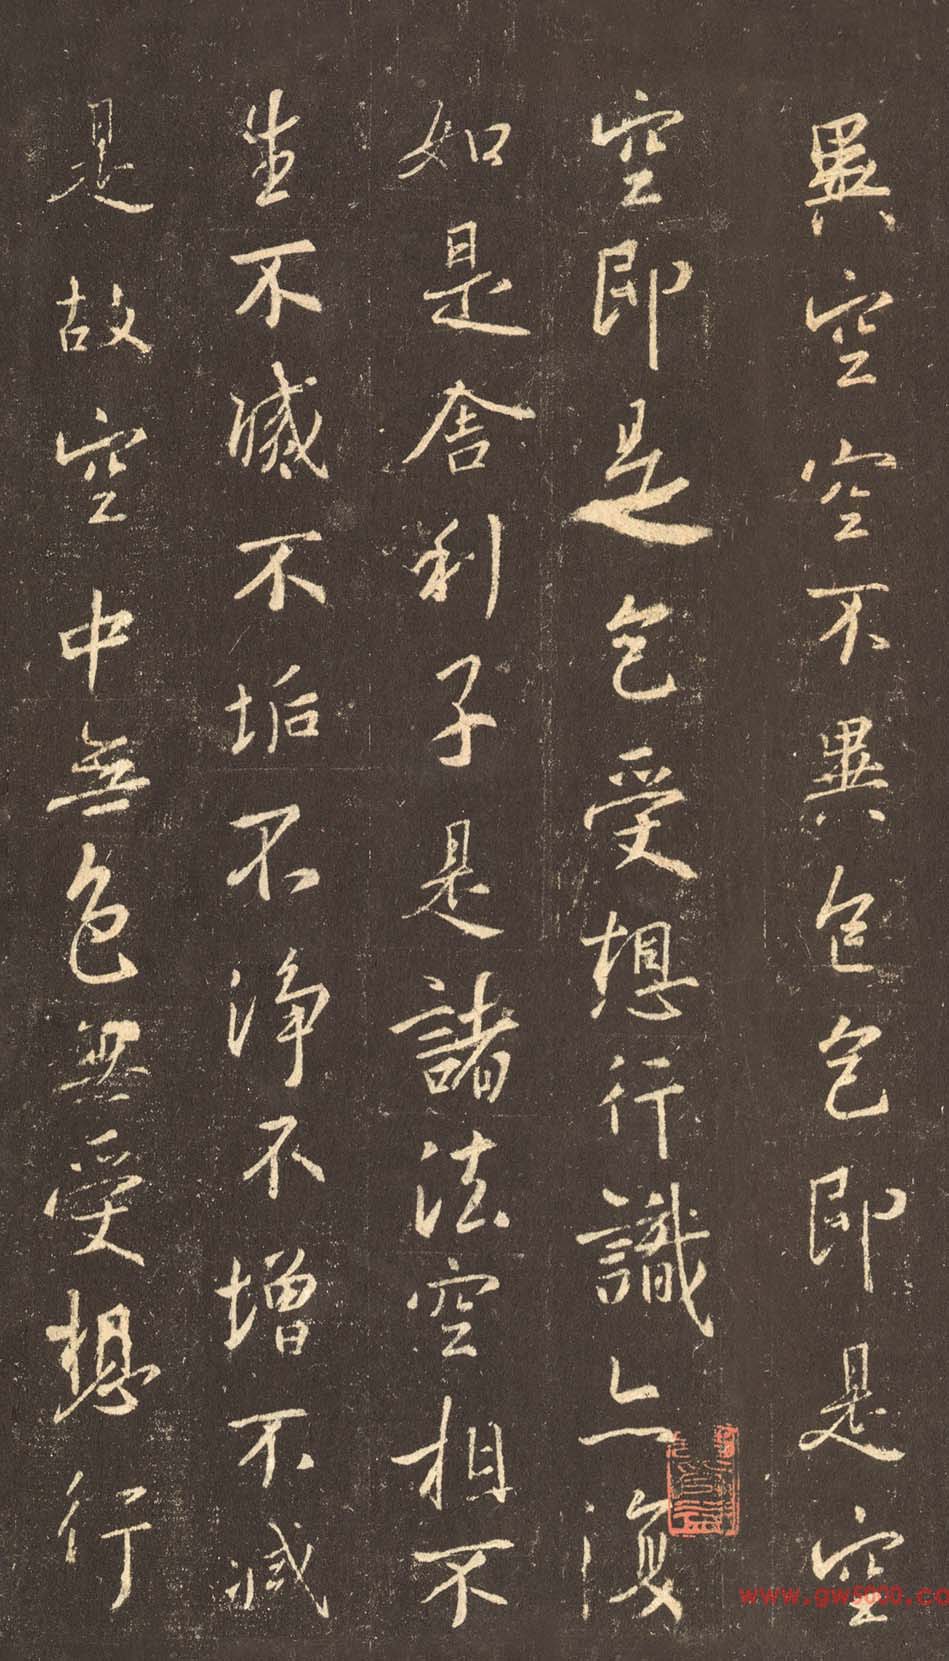 異空空不異色色即是空
空即是色受想行識亦復
如是舍利子是諸法空相不
生不滅不垢不淨不增不減
是故空中無色無受想行
www.gw5000.co